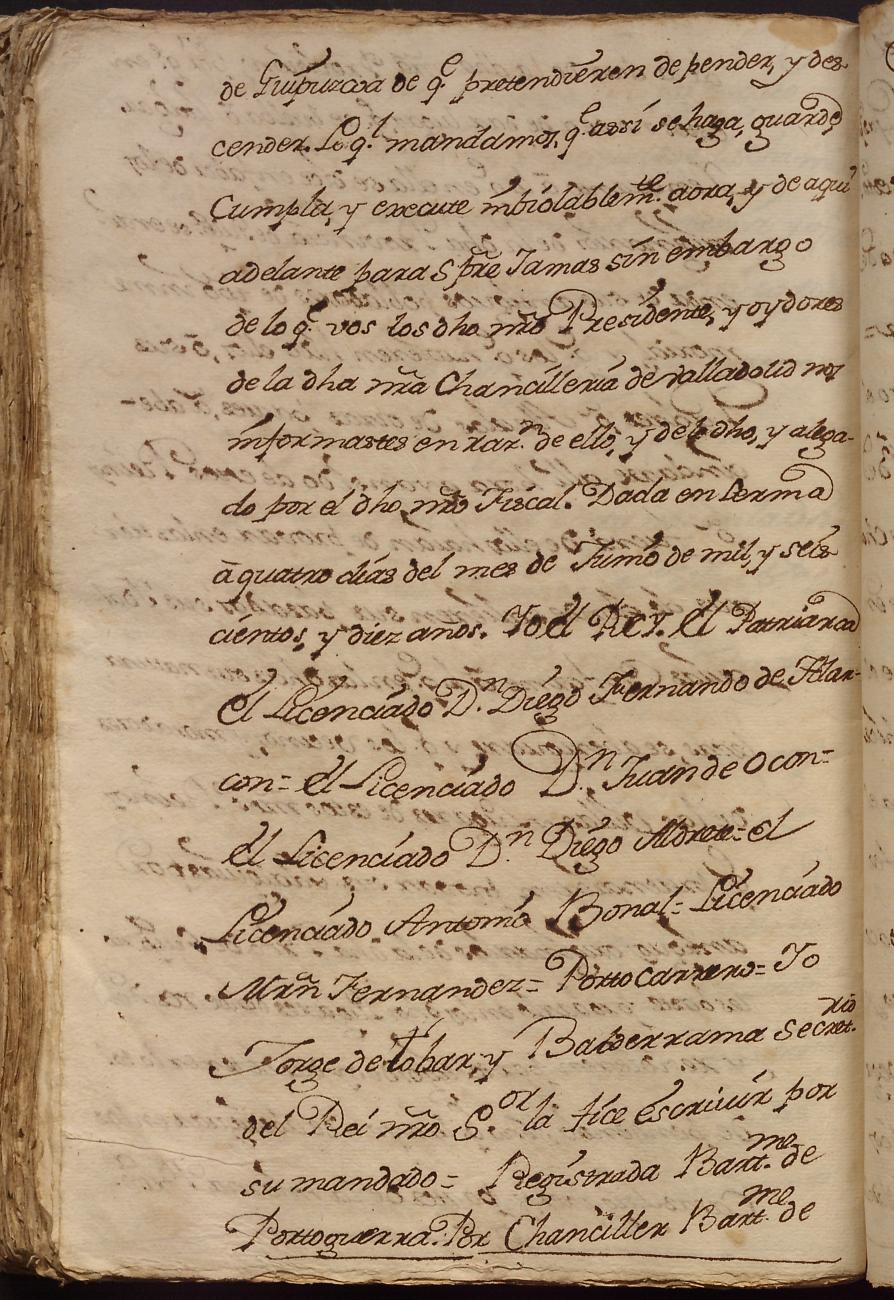 de Guipuzcoa de q.e pretendieren depender, y des
cender. Lo q.l mandamos, q.e assí se haga, guarde,
Cumpla, y execute imbiolablem.te aora, y de aqui
adelante para Spre Jamas sin embargo
de lo q.e vos los dho nrõ Presidente, y oydores
de la dha nrã Chancilleria de valladolid nos
informastes en raz.n de ello, y de lo dho, y alega-
do por el dho nrõ Fiscal. Dada en Lerma
a quatro dias del mes de Junio de mil, y seis
cientos, y diez años. Yo el Rey. el Patriarca
el Licenciado D.n Diego Fernando de Alar-
con = el Licenciado D.n Juan de Ocon =
el Licenciado D.n Diego Aldrete = el
Licenciado Antonio Bonal = Licenciado
Mrñ Fernandez = Portocarrero = Yo
Jorge de tobar, y Balderrama Secret.rio
del Rei nrõ S.or la fice escriuir por
su mandado = Registrada Bart.me de
Portoguerra. Por Chanciller Bart.me de